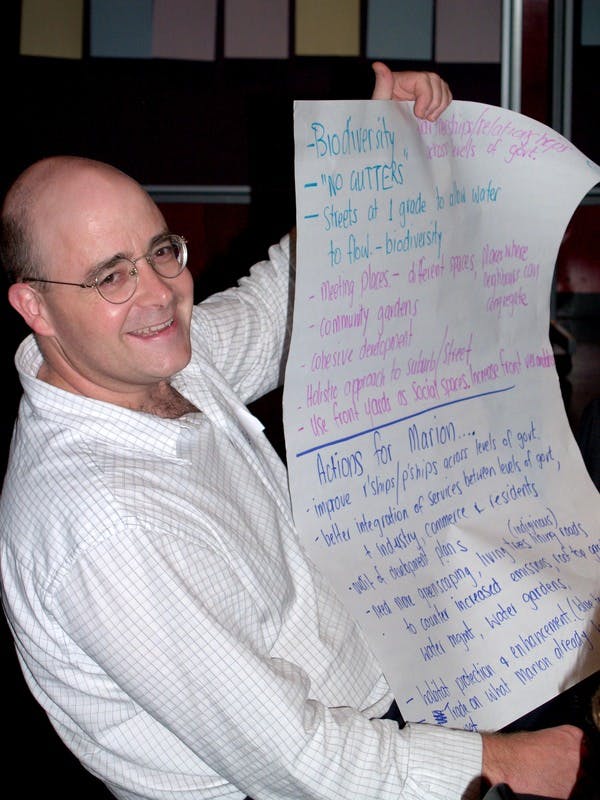 -Biodiversity
across levels of govt.
- "NO GUTTERS"
- Streets at 1 grade to allow water
to flow. - biodiversity
- meeting places. - different spaces, places where
neighbours can
congregate
- community gardens
- cohesive development
- Holistic approach to suburb/street
- Use front yards as social spaces. Increase front
Actions for Marion....
- improve r'ships/p'ships across levels of govt.
- better integration of services between levels of govt,
+ industry, commerce & residents
of development plans
- need more greenscaping, living trees lining roads
(indiginous)
to counter increased emissions, not
water mgmt, water gardens
- habitat protection & enhancement.
- Trade on what Marion already